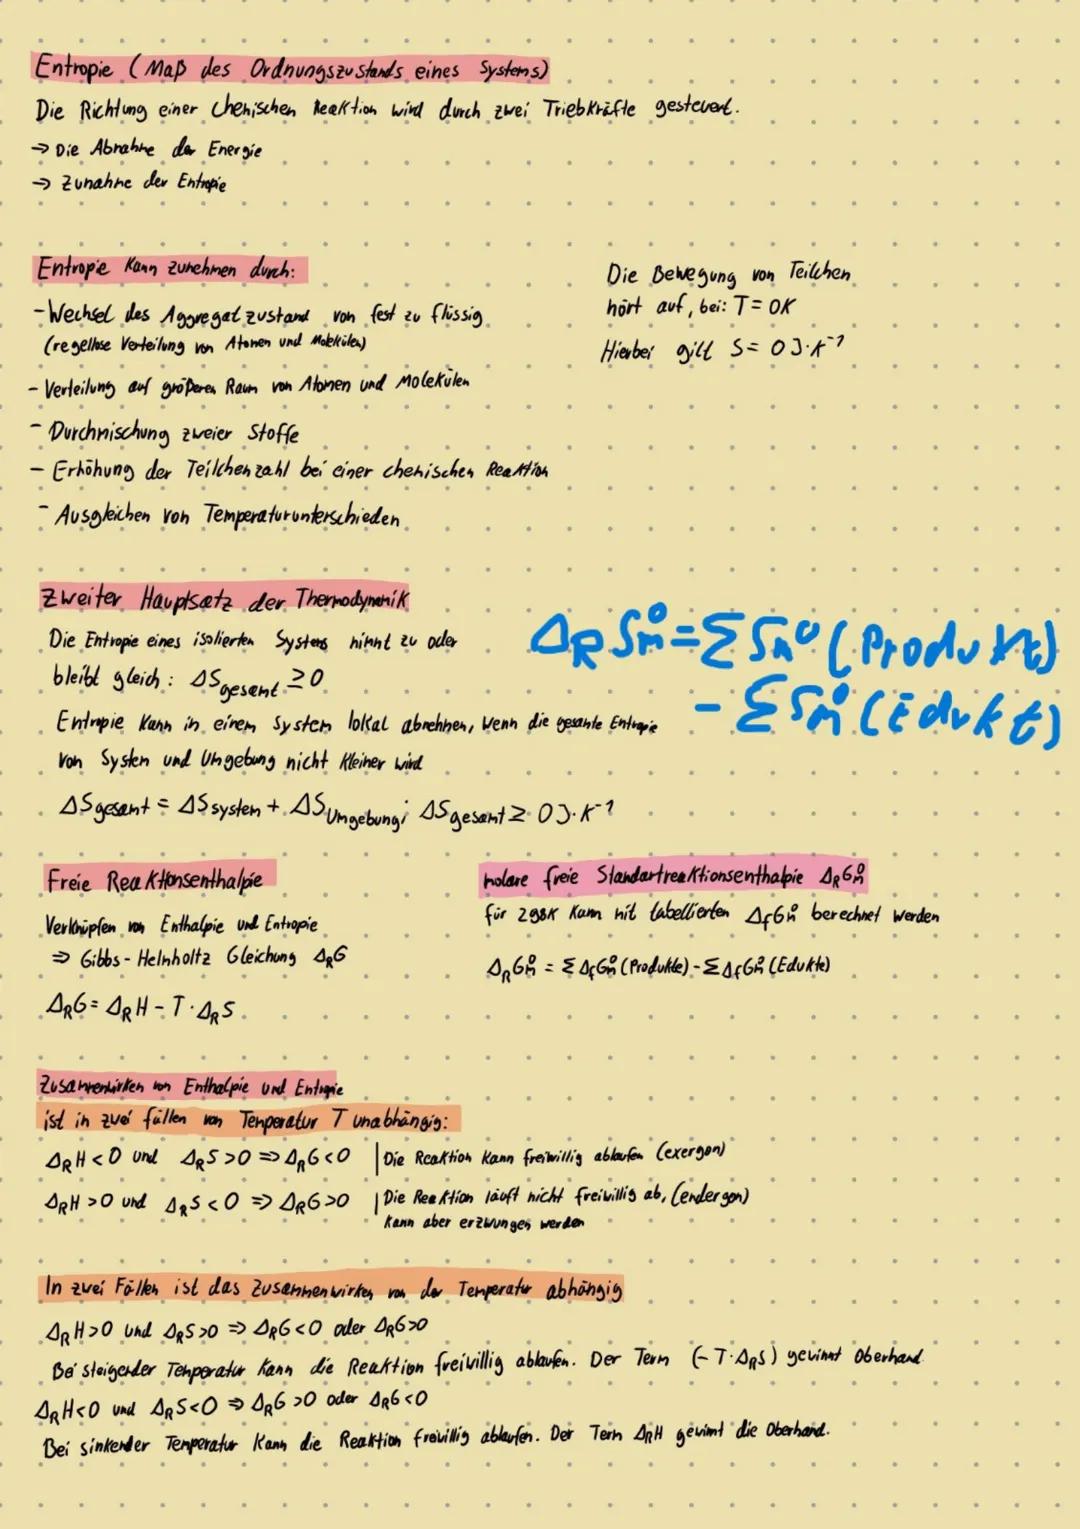 Entropie (Maß des Ordnungszustands eines Systems)
Die Richtung einer chemischen Reaktion wird durch zwei Triebkräfte gesteuert.
→ Die Abnahme der Energie
→ Zunahme der Entropie
Entropie kann zunehmen durch:
- Wechsel des Aggregatzustand von fest zu flüssig
(regellose Verteilung von Atomen und Molekülen)
- Verteilung auf größeren Raum von Atomen und Molekülen
- Durchmischung zweier Stoffe
- Erhöhung der Teilchenzahl bei einer chemischen Reaktion
- Ausgleichen von Temperaturunterschieden
Die Bewegung von Teilchen
hört auf, bei: T = 0K
Hierbei gilt S = 0 J·K⁻¹
Zweiter Hauptsatz der Thermodynamik
Die Entropie eines isolierten Systems nimmt zu oder
bleibt gleich: ΔSgesamt ≥ 0
Entropie kann in einem System lokal abnehmen, wenn die gesamte Entropie
von System und Umgebung nicht kleiner wird
ΔSgesamt = ΔSsystem + ΔSUmgebung; ΔSgesamt ≥ 0 J·K⁻¹
ΔRSm⁰ = ΣSm⁰ (Produkt)
- ΣSm⁰ (Edukt)
Freie Reaktionsenthalpie
Verknüpfen von Enthalpie und Entropie
⇒ Gibbs-Helmholtz Gleichung ΔRG
ΔRG = ΔRH - T·ΔRS
molare freie Standartreaktionsenthalpie ΔRGm⁰
für 298K kann mit tabellierten ΔfGm⁰ berechnet werden
ΔRGm⁰ = ΣΔfGm⁰ (Produkte) - ΣΔfGm⁰ (Edukte)
Zusammenwirken von Enthalpie und Entropie
ist in zwei fällen von Temperatur T unabhängig:
ΔRH < 0 und ΔRS > 0 ⇒ ΔRG < 0 | Die Reaktion kann freiwillig ablaufen (exergon)
ΔRH > 0 und ΔRS < 0 ⇒ ΔRG > 0 | Die Reaktion läuft nicht freiwillig ab, (endergon)
kann aber erzwungen werden
In zwei Fällen ist das Zusammenwirken von der Temperatur abhängig
ΔRH > 0 und ΔRS > 0 ⇒ ΔRG < 0 oder ΔRG > 0
Bei steigender Temperatur kann die Reaktion freiwillig ablaufen. Der Term (-T·ΔRS) gewinnt Oberhand
ΔRH < 0 und ΔRS < 0 ⇒ ΔRG > 0 oder ΔRG < 0
Bei sinkender Temperatur kann die Reaktion freiwillig ablaufen. Der Term ΔRH gewinnt die Oberhand.